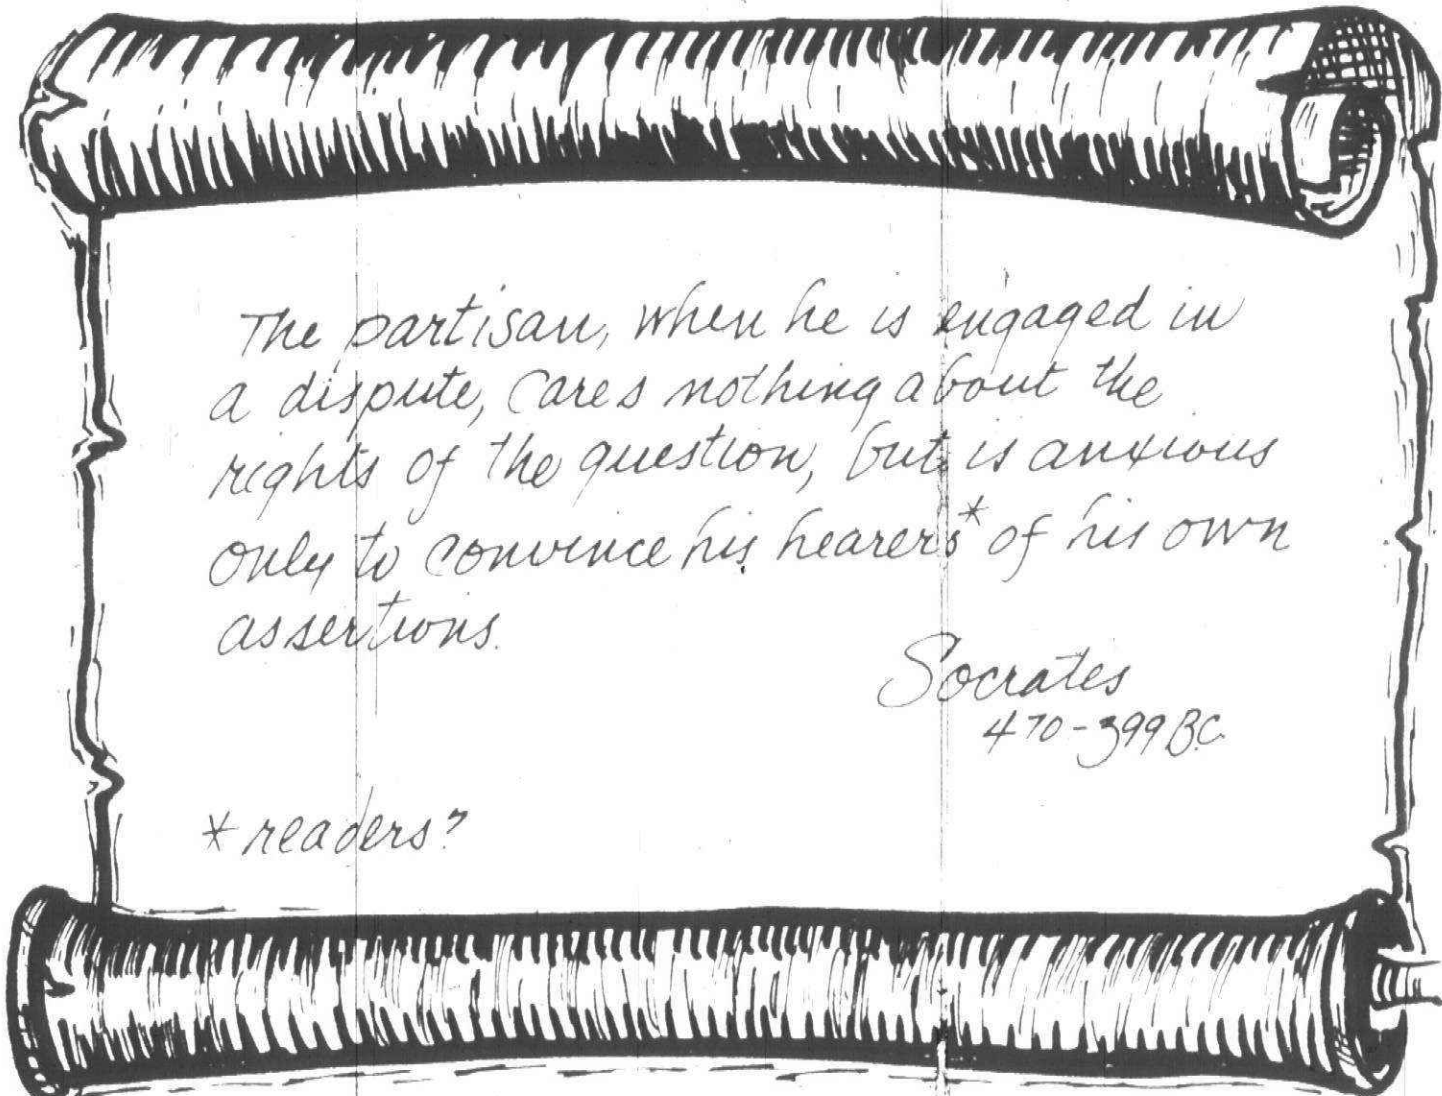 The partisan, when he is engaged in
a dispute, cares nothing about the
rights of the question, but is anxious
only to convince his hearers* of his own
assertions.
Socrates
470-399 B.C.
* readers?